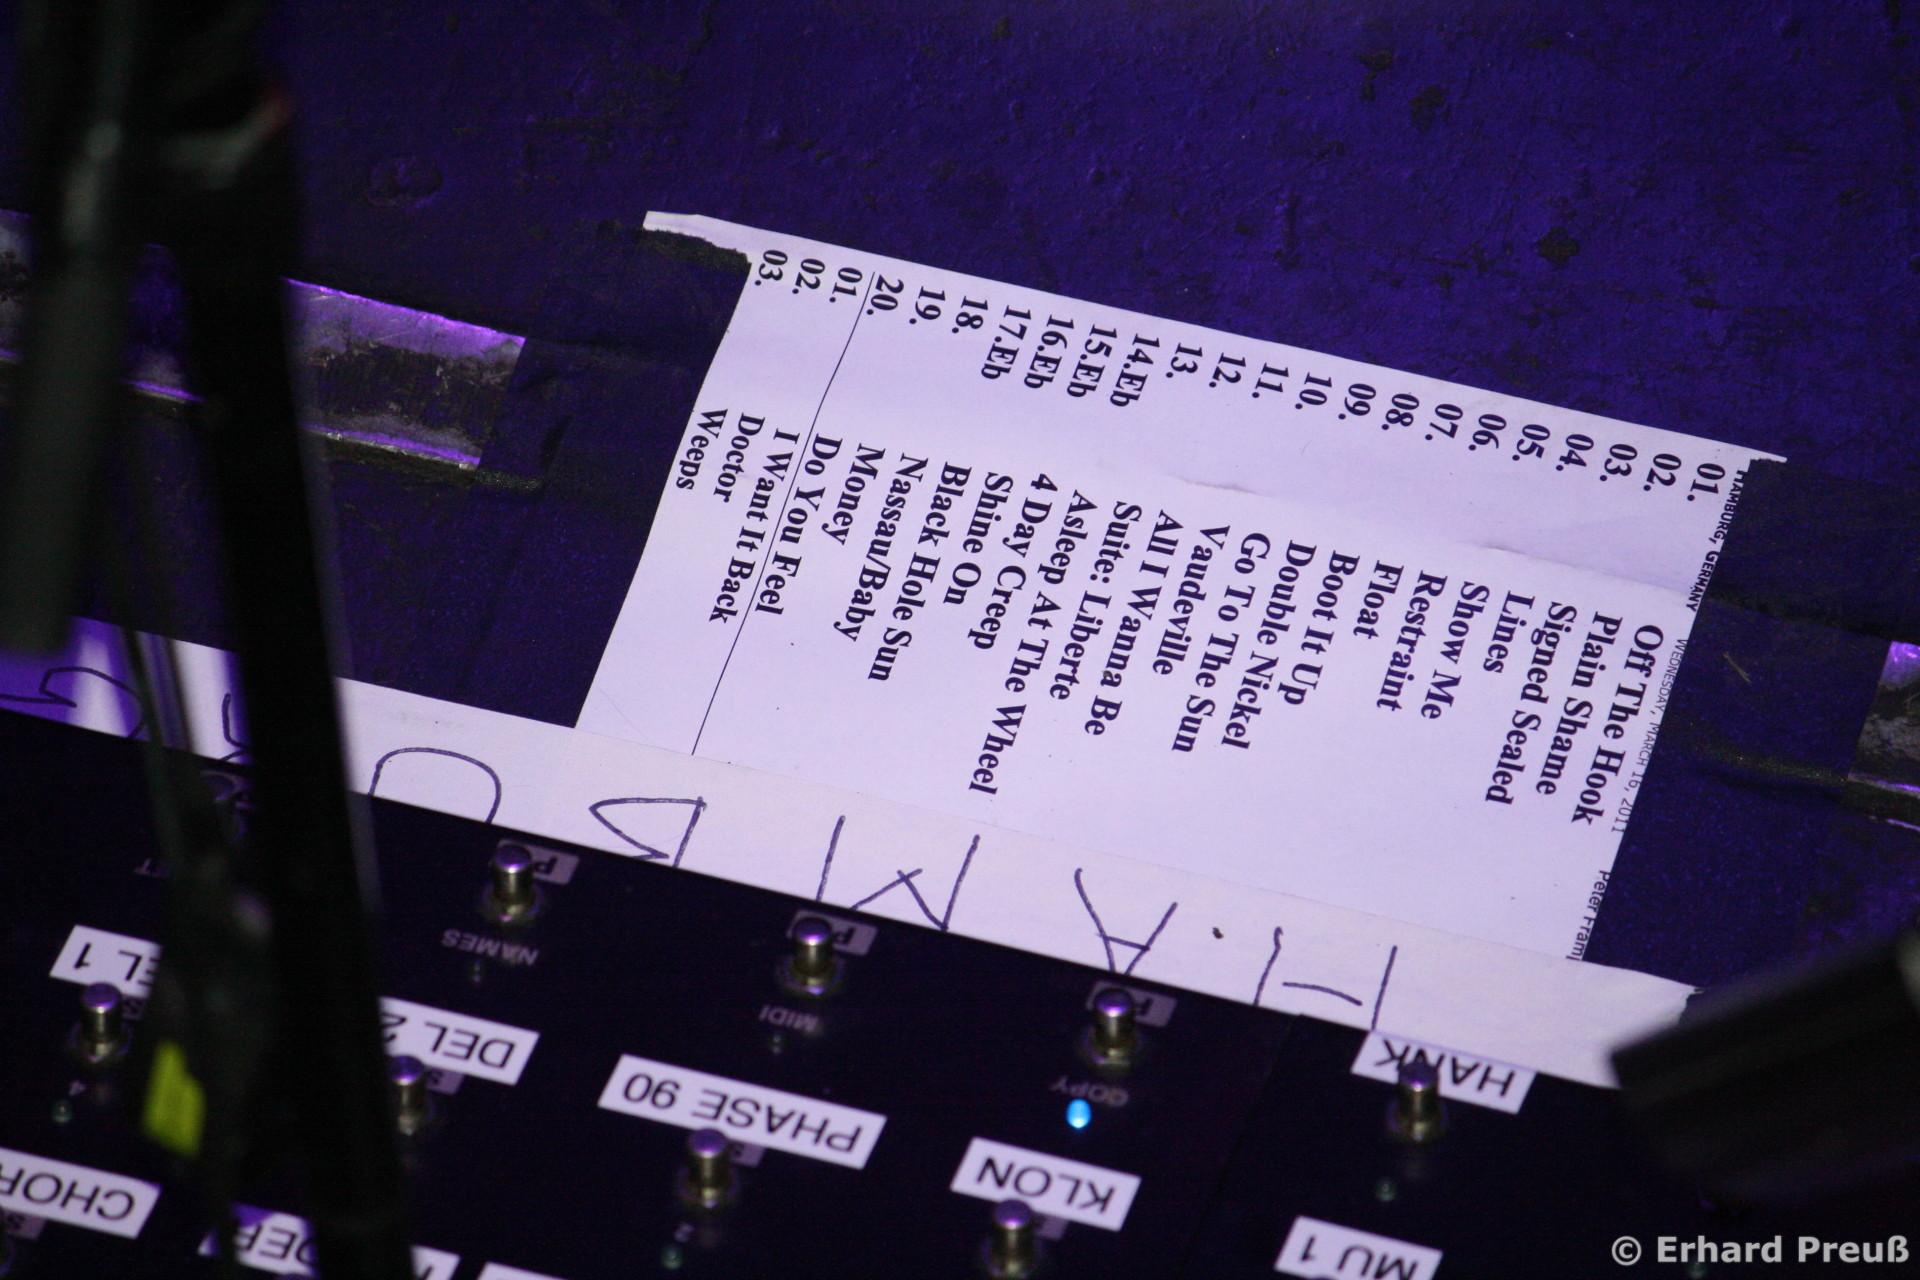 HAMBURG, GERMANY WEDNESDAY, MARCH 16, 2011 Peter Fram
01. Off The Hook
02. Plain Shame
03. Signed Sealed
04. Lines
05. Show Me
06. Restraint
07. Float
08. Boot It Up
09. Double Nickel
10. Go To The Sun
11. Vaudeville
12. All I Wanna Be
13. Suite: Liberte
14.Eb Asleep At The Wheel
15.Eb 4 Day Creep
16.Eb Shine On
17.Eb Black Hole Sun
18. Nassau/Baby
19. Money
20. Do You Feel
01. I Want It Back
02. Doctor
03. Weeps
HAMBURG
HANK
COPY
MIDI
NAMES
MU 1
KLON
PHASE 90
DEL 2
EL 1
2
4
CHOR
© Erhard Preuß